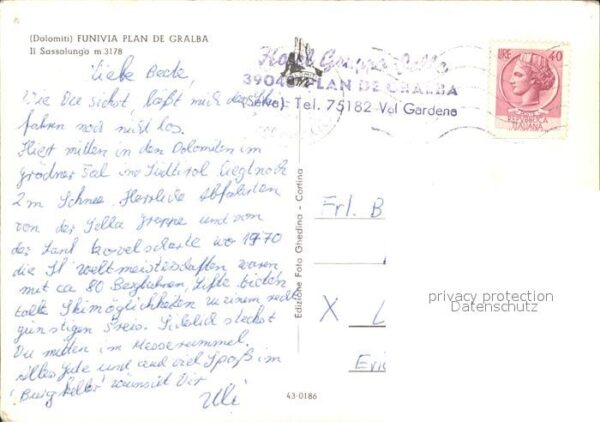 (Dolomiti) FUNIVIA PLAN DE GRALBA
Il Sassolungo m 3178
Liebe Beate,
Wie Du siehst, läßt mich das Ski-
fahren noch nicht los.
Hier mitten in den Dolomiten im
Grödner Tal in Südtirol liegt noch
2 m Schnee. Herrliche Abfahrten
von der Sella Gruppe und von
der wo 1970
die Ski Weltmeisterschaften waren
mit ca 80 Bergbahnen, Lifte bieten
tolle Skimöglichkeiten zu einem recht
günstigen Preis. steckst
Du mitten im Messerummel.
Alles Gute und viel Spaß im
Burgkeller wünscht Dir
Uli
Hotel Gruppo Sella
39048 PLAN DE GRALBA
(Selva) Tel. 75182 Val Gardena
LIRE 40
REPUBBLICA
ITALIANA
Edizione Foto Ghedina - Cortina
Frl. B
X L
privacy protection
Datenschutz
43-0186